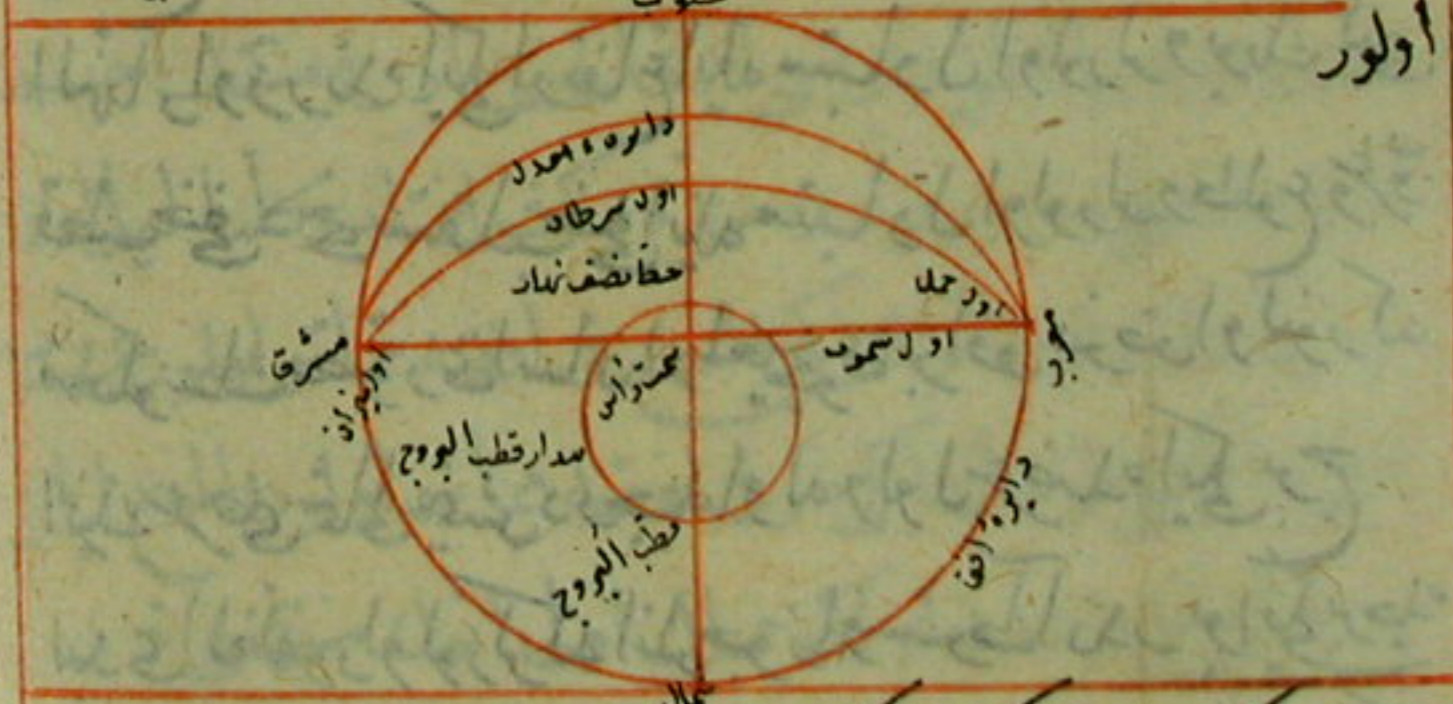 جنوب
اولور
دائره معدل
اول سرطان
خط نصف نهار
اول حمل
اول سموت
مغرب
مشرق
اول میزان
سمت رأس
مدار قطب البروج
قطب البروج
دایرۀ افق
شمال